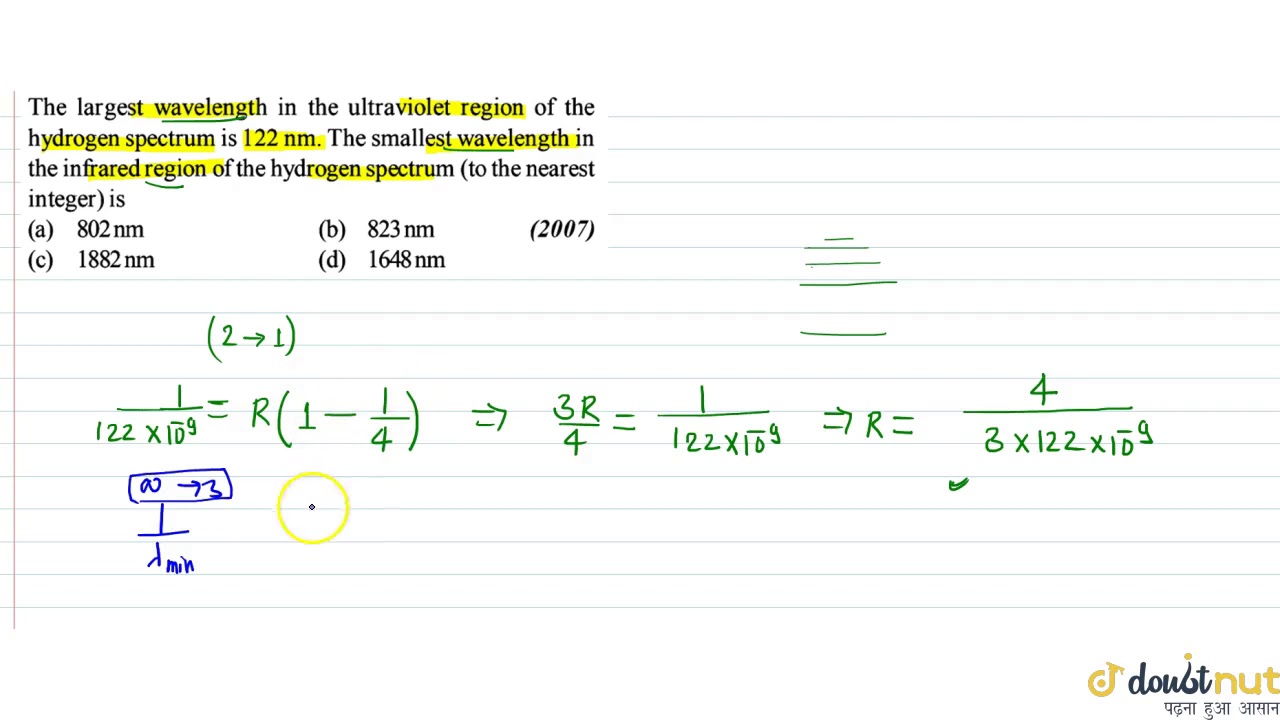 The largest wavelength in the ultraviolet region of the
hydrogen spectrum is 122 nm. The smallest wavelength in
the infrared region of the hydrogen spectrum (to the nearest
integer) is
(a) 802 nm (b) 823 nm (2007)
(c) 1882 nm (d) 1648 nm
(2 → 1)
1/122 × 10⁻⁹ = R(1 − 1/4) ⇒ 3R/4 = 1/122 × 10⁻⁹ ⇒ R = 4/3 × 122 × 10⁻⁹
∞ → 3
1/λmin
doubtnut
पढ़ना हुआ आसान